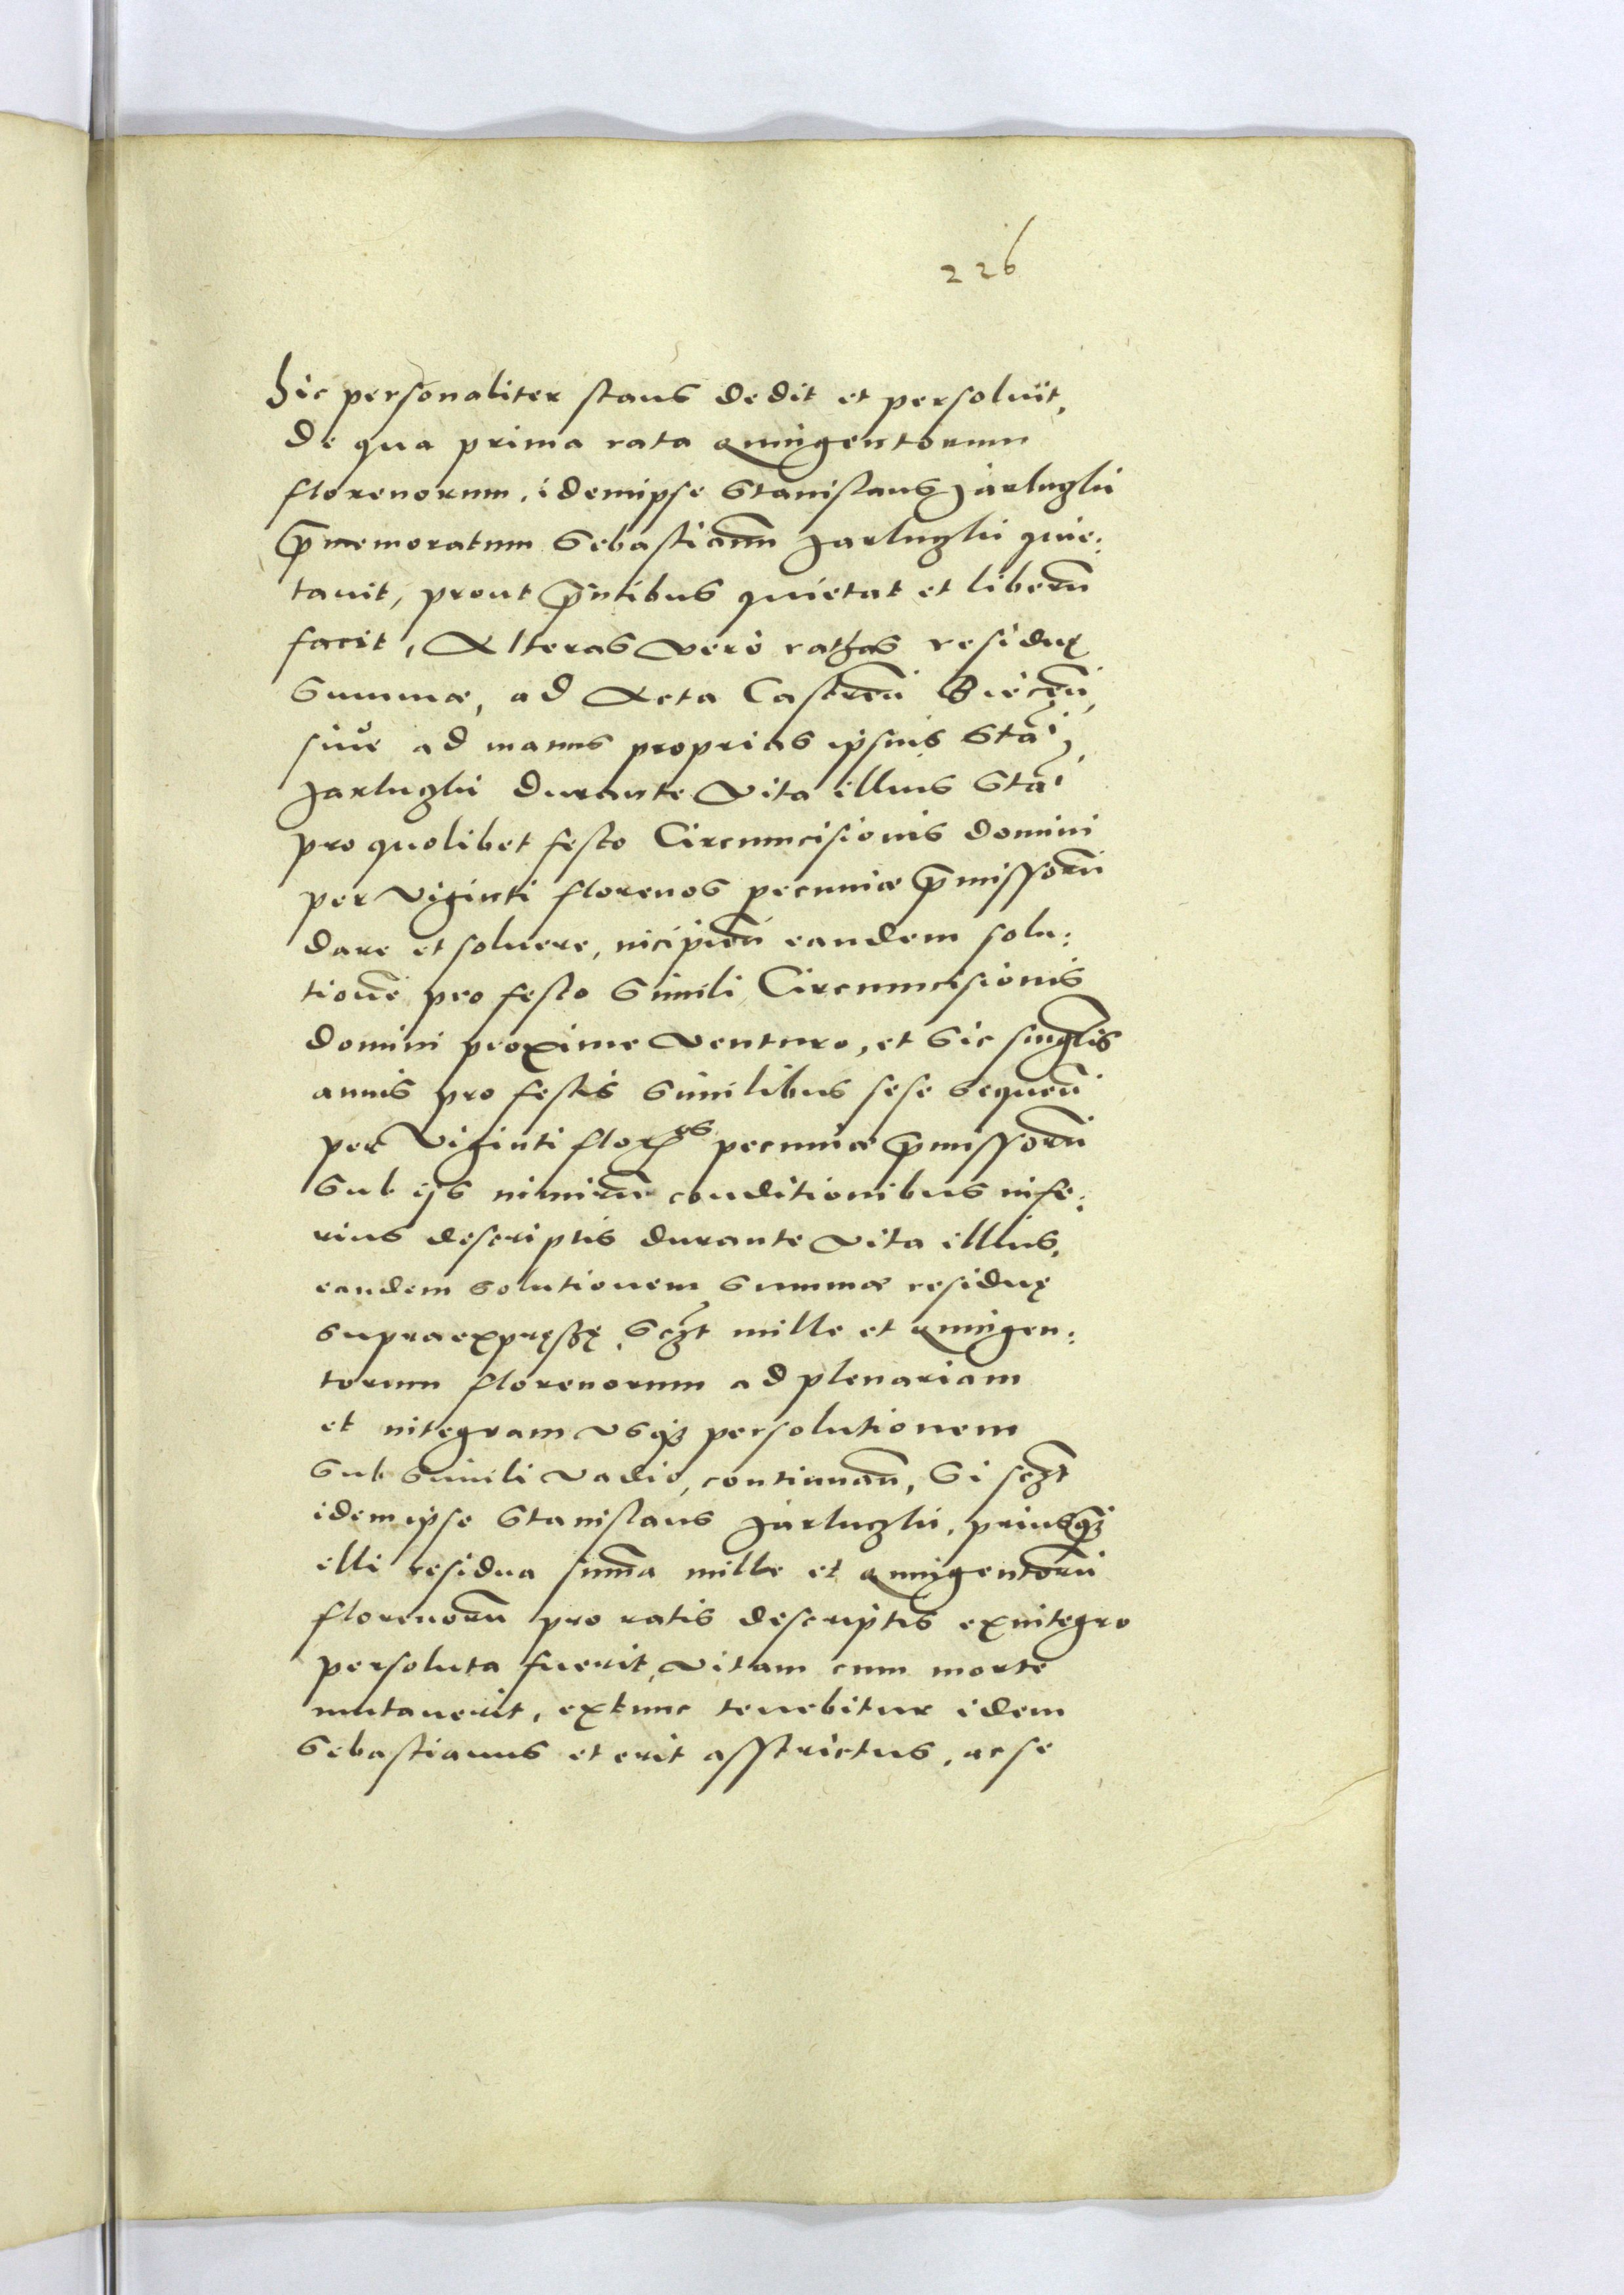 226
Hic personaliter stans dedit et persoluit,
de qua prima rata Quingentorum
florenorum, idemipse Stanislaus Jarluglii
p̄memoratum Sebastianū Jarluglii quie:
tauit, prout p̄ntibus quietat et liberū
facit, Alteras vero rathas residuę
Summæ, ad Acta Castreñ Biecen̄,
siue ad manus proprias ipsius Stā¹,
Jarluglii durante vita illius Stā¹
pro quolibet festo Circumcisionis domini
per viginti florenos pecuniæ p̄missorū
dare et soluere, incipien̄ eandem solu:
tionē pro festo Simili Circumcisionis
domini proxime venturo, et Sic singlis
annis pro festis Similibus sese sequen̄
per Viginti florꝭos pecuniæ p̄missorū
Sub ijs nimirū conditionibus infe:
rius descriptis durante vita illius,
eandem solutionem Summæ residuę
supraexpręssę, Sczt mille et Quingen:
torum florenorum ad plenariam
et integram vsqꝫ persolutionem
Sub Simili vadio, continuan̄, Si sczt
idemipse Stanislaus Jarluglii, priusqꝫ
illi residua sum̄a mille et Quingentorū
florenorū pro ratis descriptis exintegro
persoluta fuerit, vitam cum morte
mutauerit, extunc tenebitur idem
Sebastianus et erit asstrictus, ac se